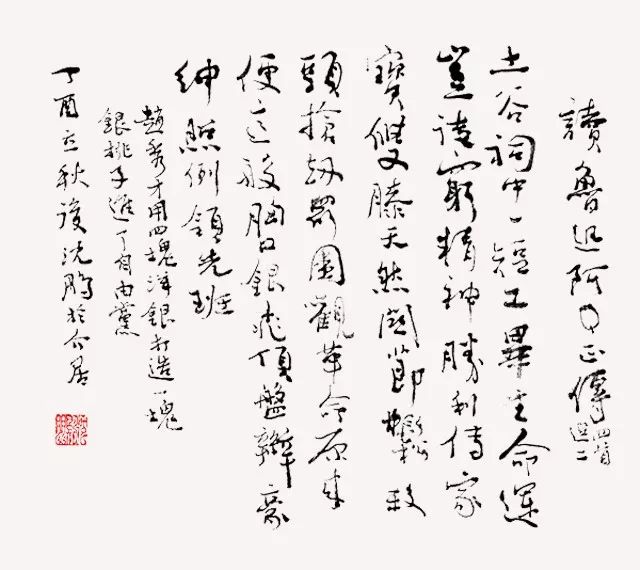 讀魯迅阿Q正傳 四首選二
土谷祠中一短工畢生命運
豈諉窮精神勝利傳家
寶雙膝天然關節鬆殺
頭搶劫圍觀革命原來
便這般胸口銀頂盤辮豪
紳照例領先班
趙秀才用四塊洋銀打造一塊
銀桃子進了自由黨
丁酉立秋後沈鵬於介居